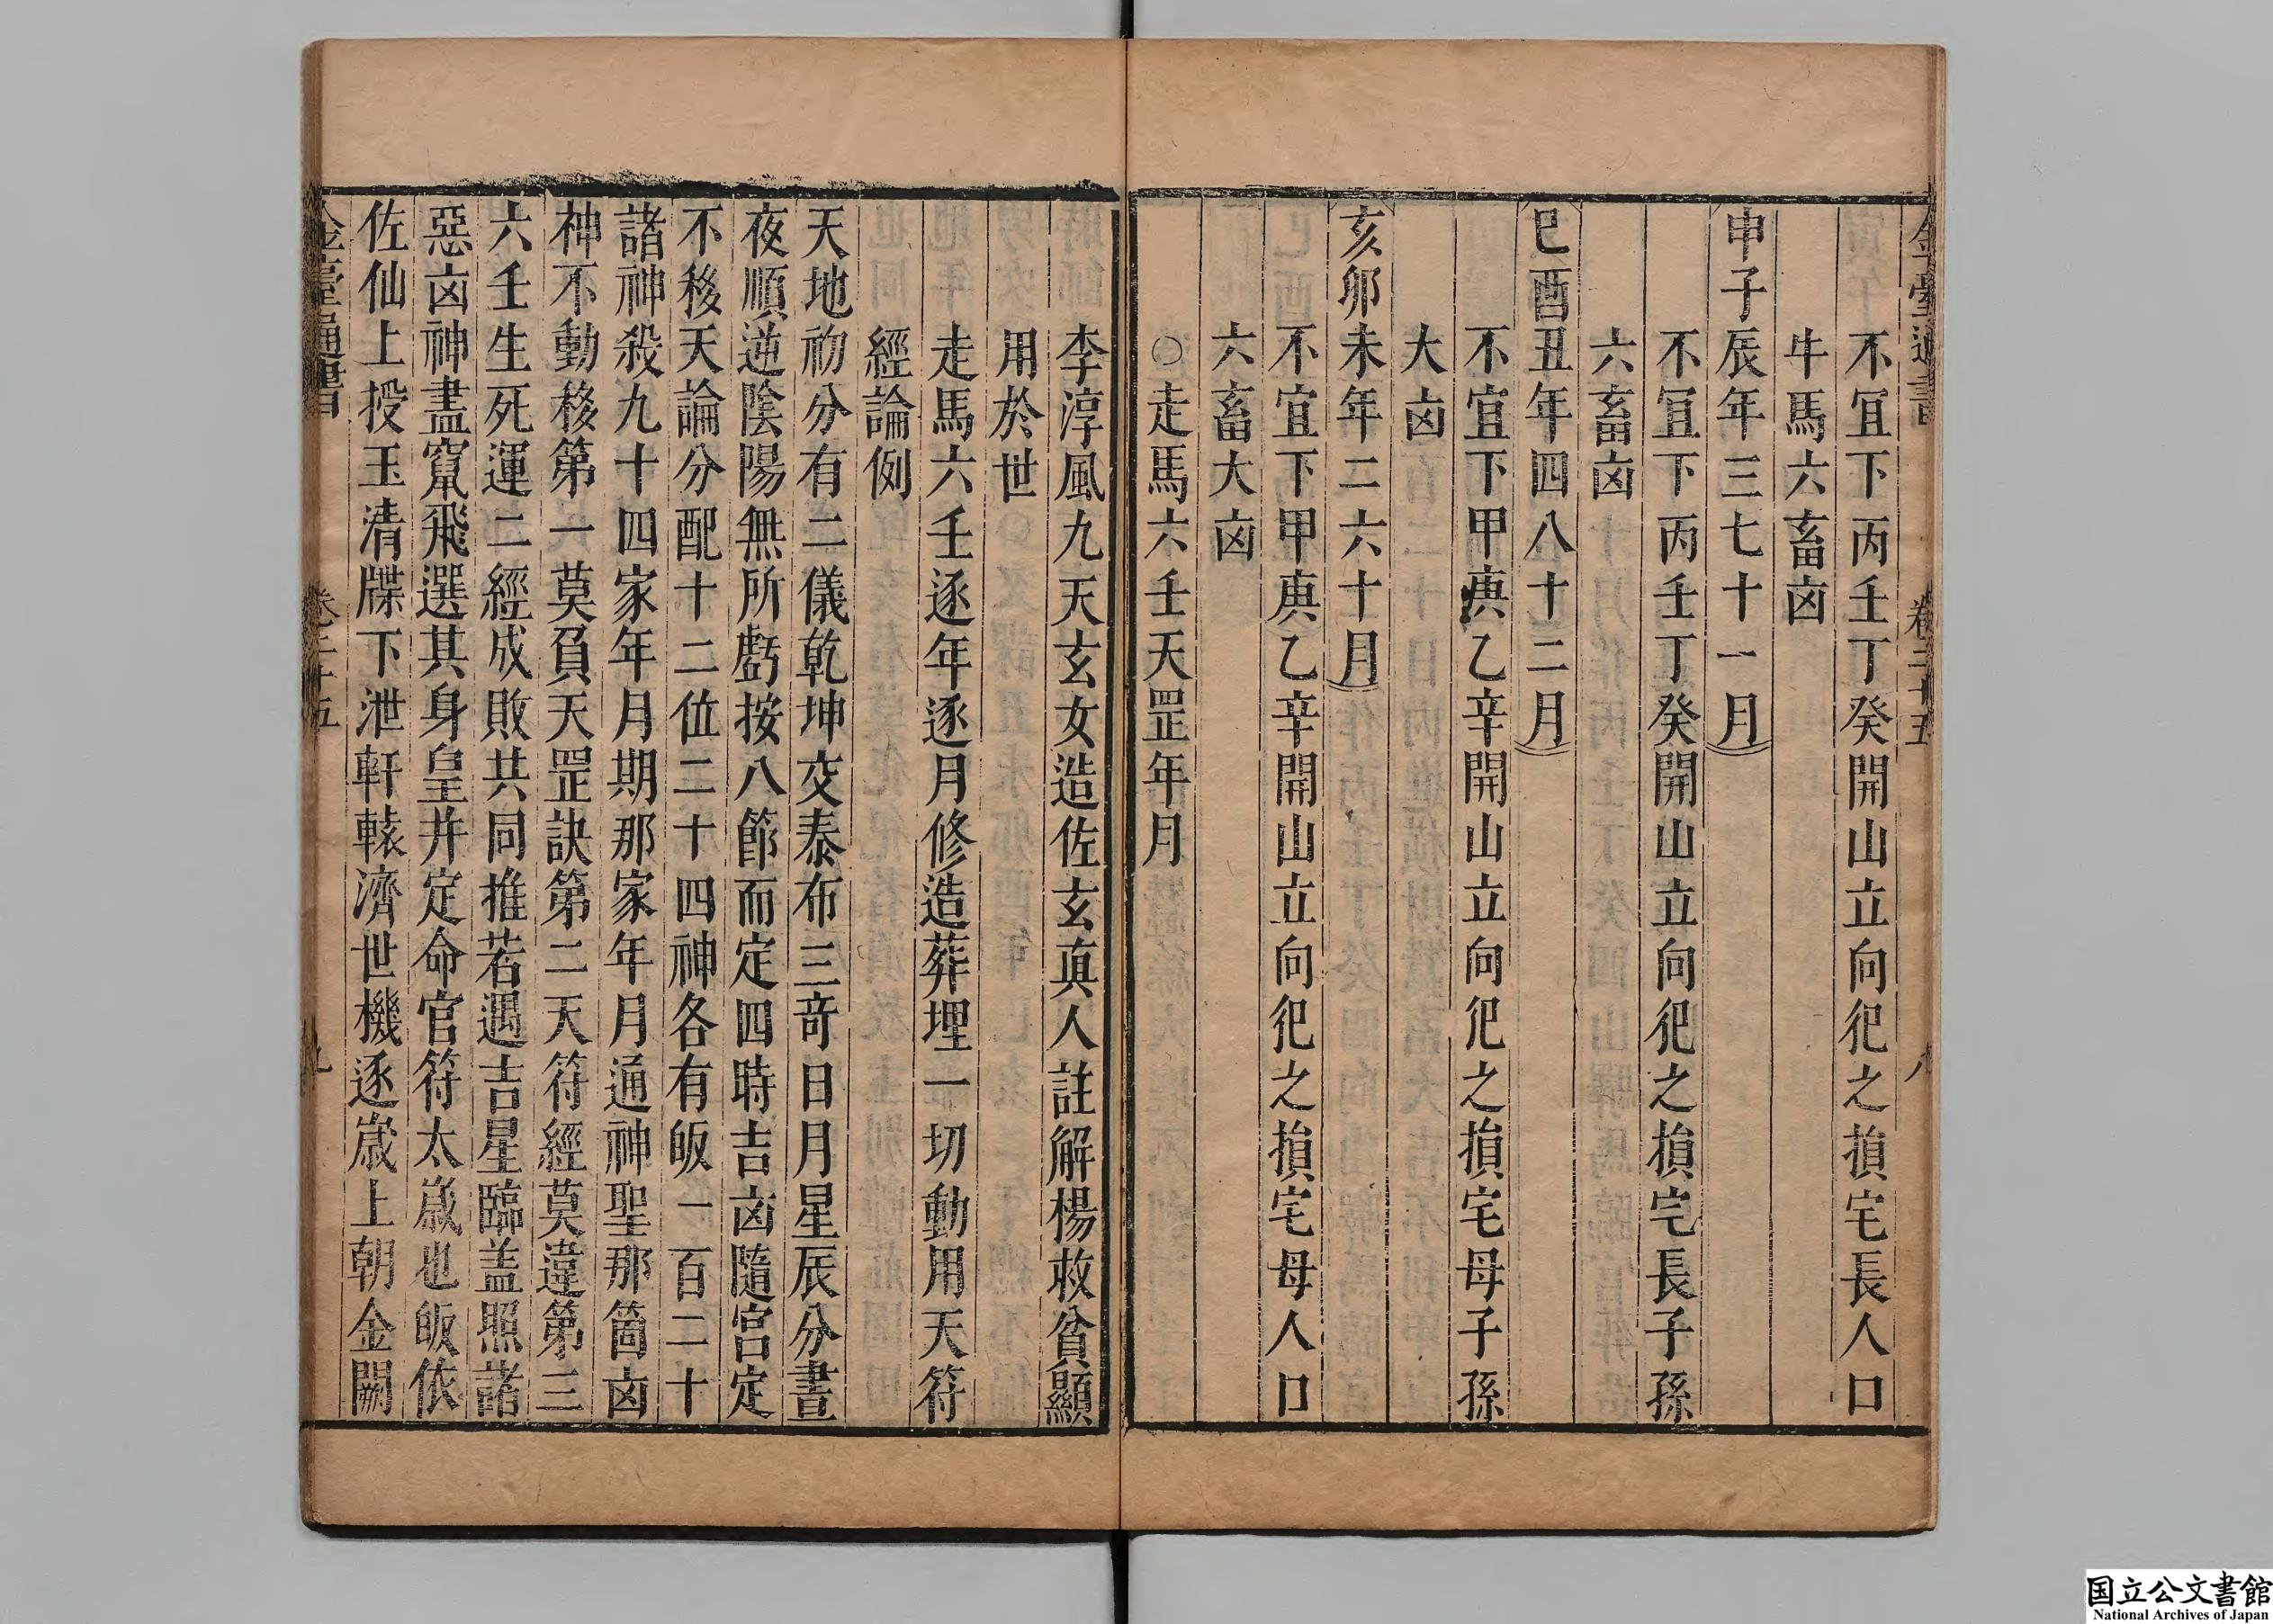 金臺通書 卷三十五 八
不宜下丙壬丁癸開山立向犯之損宅長人口
牛馬六畜凶
申子辰年三七十一月
不宜下丙壬丁癸開山立向犯之損宅長子孫
六畜凶
巳酉丑年四八十二月
不宜下甲庚乙辛開山立向犯之損宅母子孫
大凶
亥卯未年二六十月
不宜下甲庚乙辛開山立向犯之損宅母人口
六畜大凶
○走馬六壬天罡年月
李淳風九天玄女造佐玄真人註解楊救貧顯
用於世
走馬六壬逐年逐月修造葬埋一切動用天符
經論例
天地初分有二儀乾坤交泰布三奇日月星辰分晝
夜順逆陰陽無所虧按八節而定四時吉凶隨宮定
不移天論分配十二位二十四神各有皈一百二十
諸神殺九十四家年月期那家年月通神聖那箇凶
神不動移第一莫負天罡訣第二天符經莫違第三
六壬生死運二經成敗共同推若遇吉星臨盖照諸
惡凶神盡竄飛選其身皇并定命官符太歲也皈依
佐仙上授玉清牒下泄軒轅濟世機逐歲上朝金闕
金臺通書 卷三十五 九
国立公文書館
National Archives of Japan